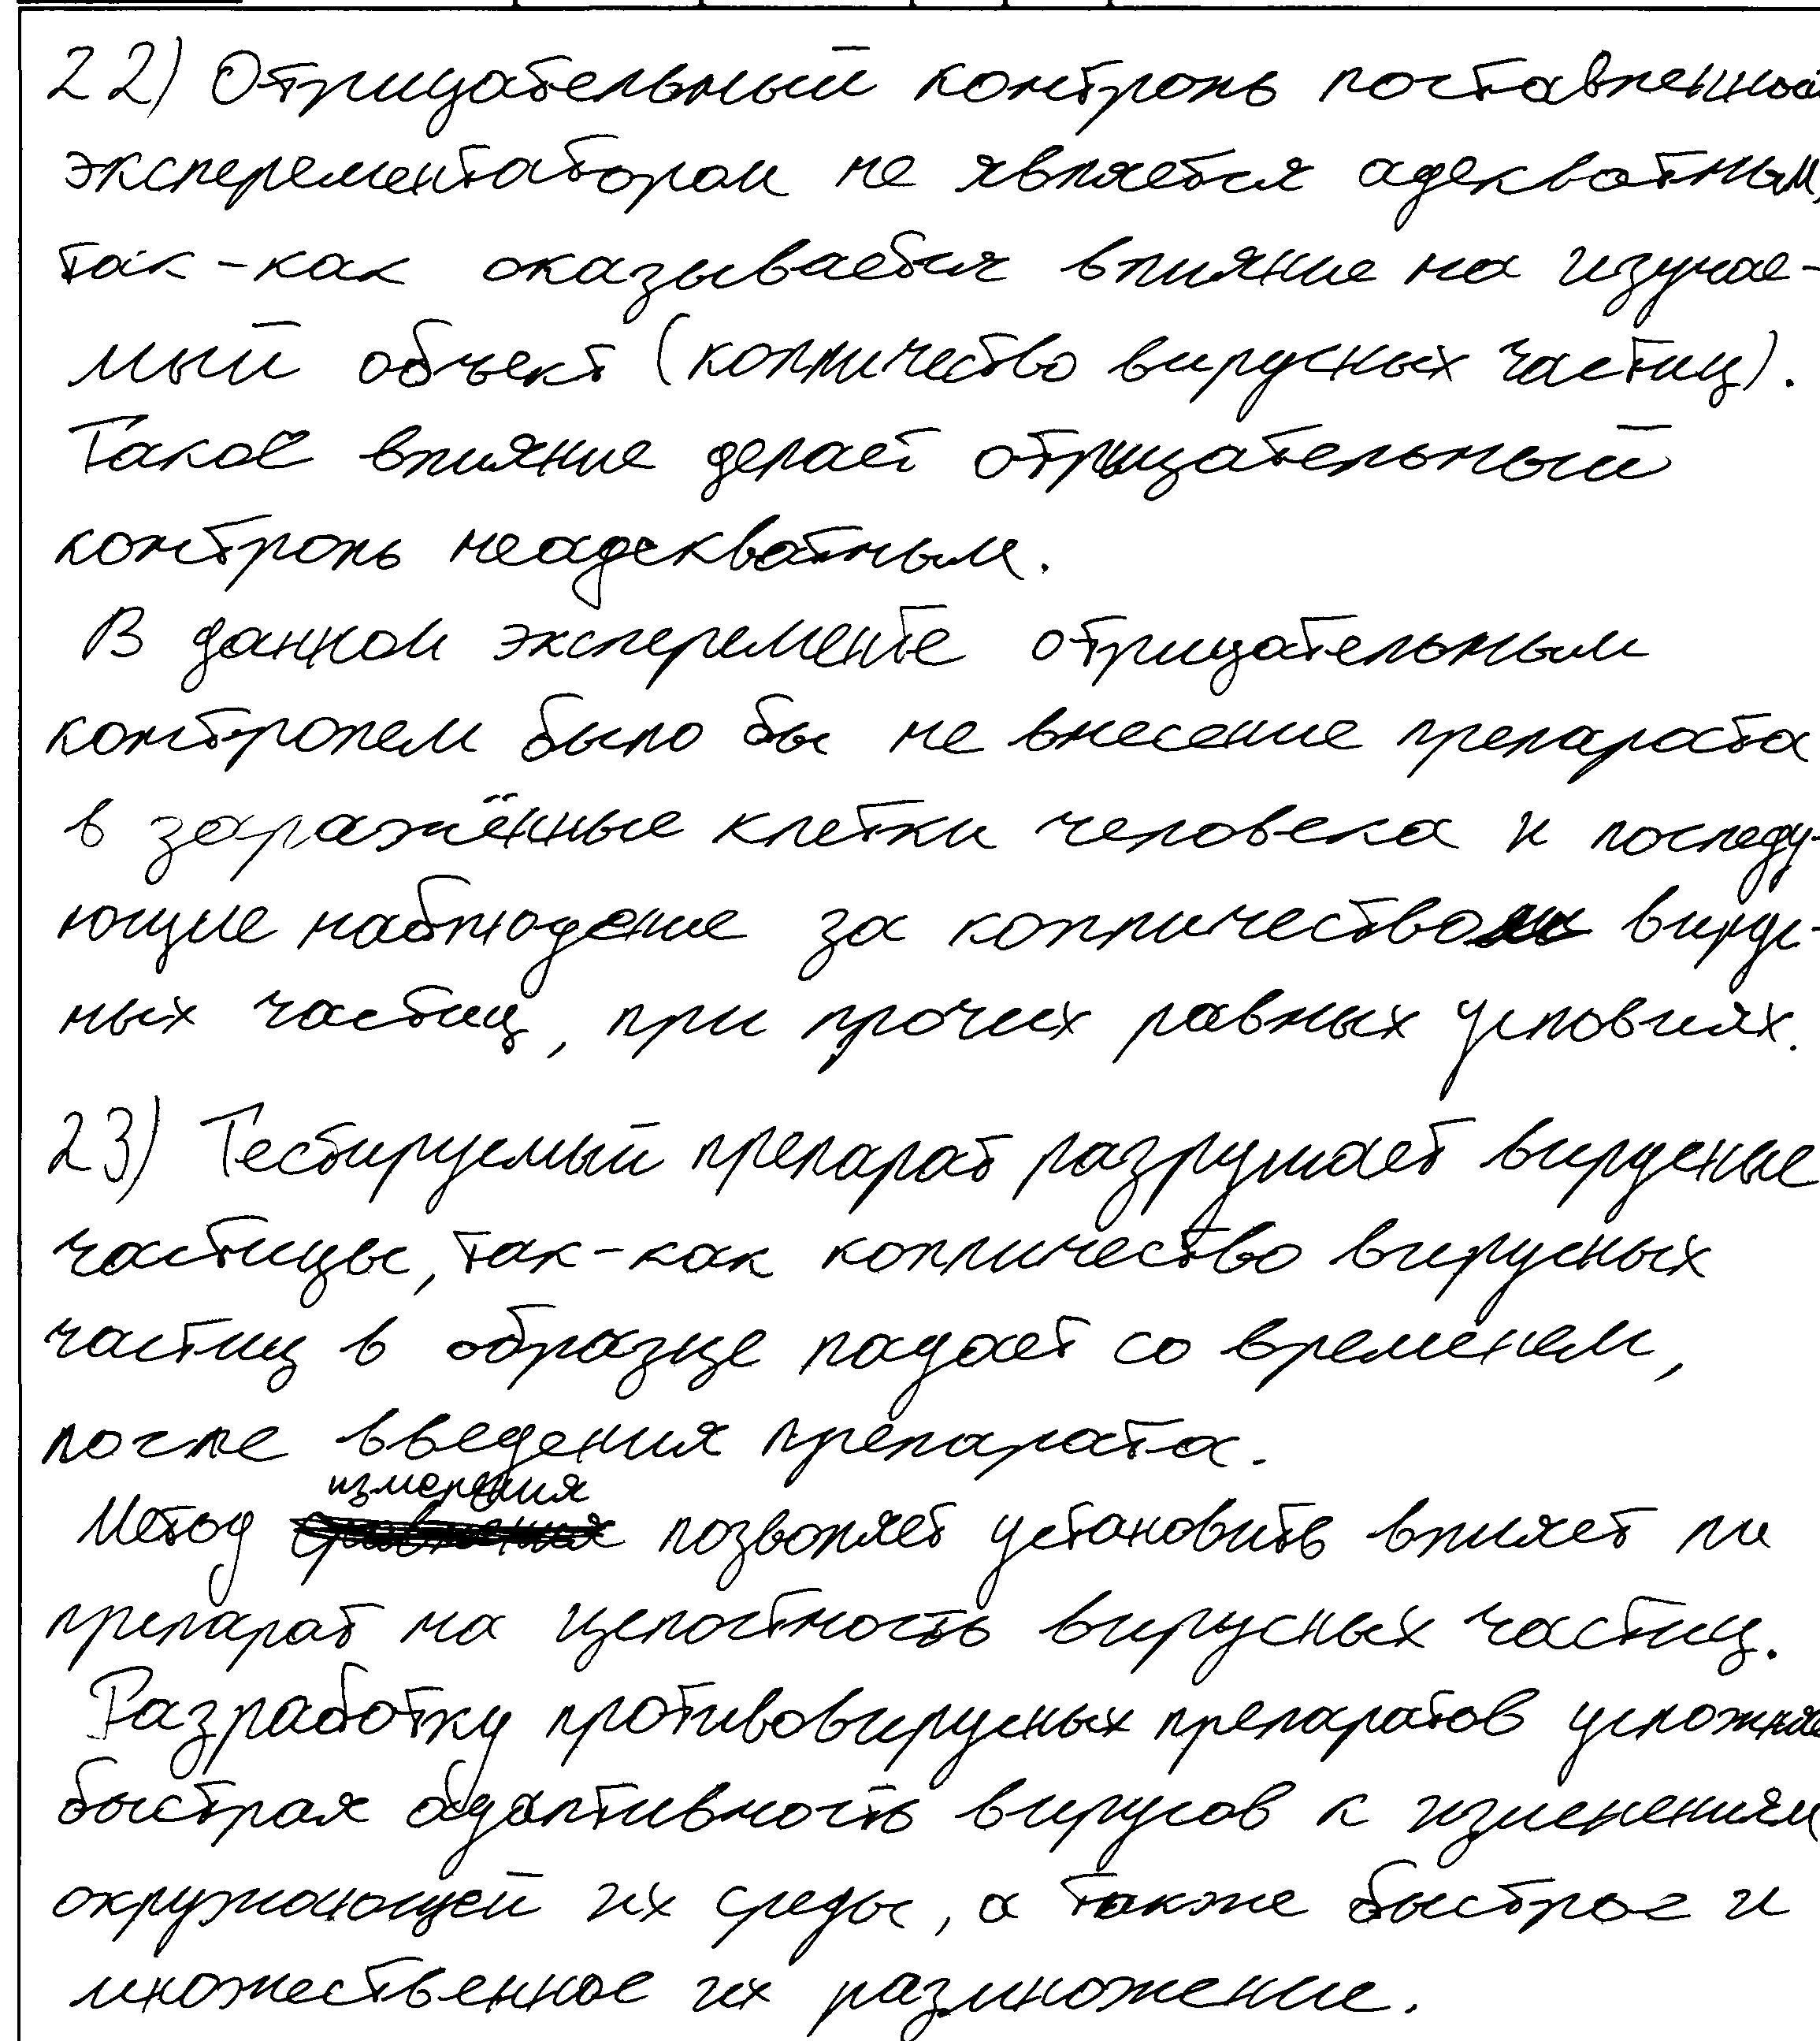 22) Отрицательный контроль поставленный
эксперементатором не является адекватным,
так-как оказывается влияние на изучае-
мый объект (колличество вирусных частиц).
Такое влияние делает отрицательный
контроль неадекватным.
В данном эксперементе отрицательным
контролем было бы не внесение препарата
в заражённые клетки человека и последу-
ющие наблюдение за колличеством вирус-
ных частиц, при прочих равных условиях.
23) Тестируемый препарат разрушает вирусные
частицы, так-как колличество вирусных
частиц в образце падает со временем,
после введения препарата.
измерения
Метод позволяет установить влияет ли
препарат на целостность вирусных частиц.
Разработку противовирусных препаратов усложняе
быстрая адаптивность вирусов к изменениям
окружающей их среды, а также быстрое и
множественное их размножение.